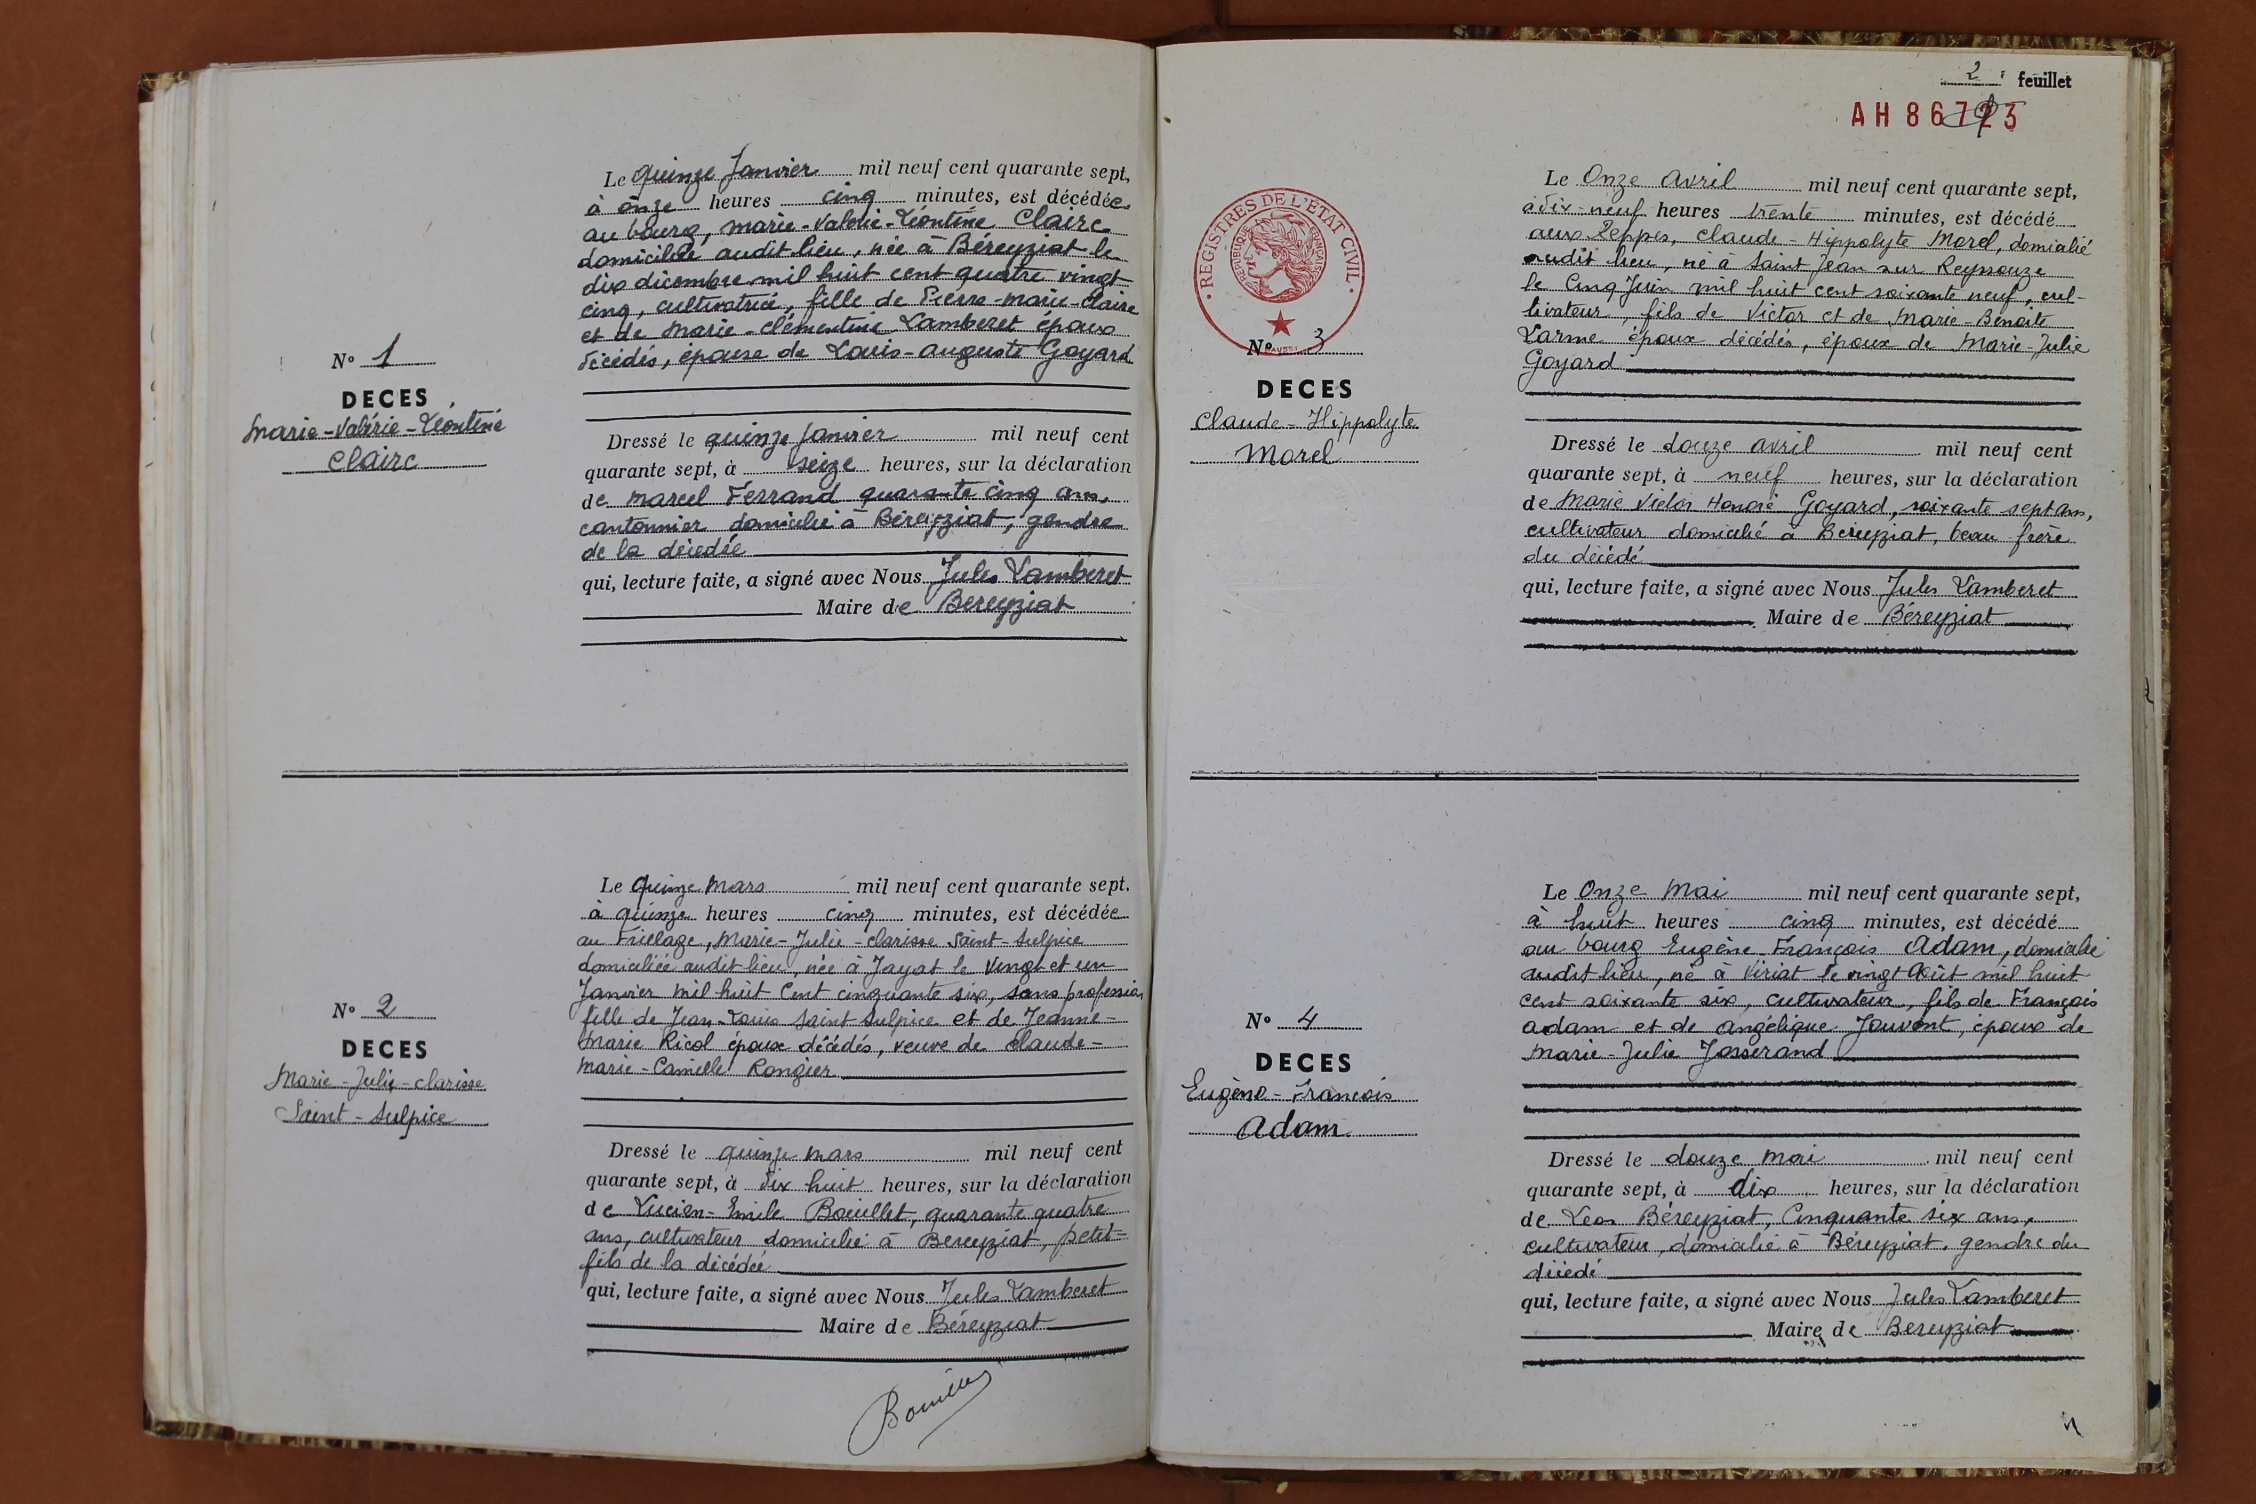 Le quinze Janvier mil neuf cent quarante sept,
à onze heures cinq minutes, est décédée
au bourg, Marie-Valérie-Léontine Claire
domiciliée audit lieu, née à Béreyziat le
dix décembre mil huit cent quatre vingt
cinq, cultivatrice, fille de Pierre-Marie-Claire
et de Marie-Clémentine Lamberet époux
décédés, épouse de Louis-Auguste Goyard
N° 1
DECES
Marie-Valérie-Léontine
Claire
Dressé le quinze Janvier mil neuf cent
quarante sept, à seize heures, sur la déclaration
de Marcel Ferrand quarante cinq ans,
cantonnier domicilié à Béreyziat, gendre
de la décédée
qui, lecture faite, a signé avec Nous Jules Lamberet
Maire de Béreyziat
Le quinze Mars mil neuf cent quarante sept.
à quinze heures cinq minutes, est décédée
au Friellage, Marie-Julie-Clarisse Saint-Sulpice
domiciliée audit lieu, née à Jayat le vingt et un
Janvier mil huit cent cinquante six, sans profession
fille de Jean-Louis Saint Sulpice et de Jeanne=
Marie Ricol époux décédés, veuve de Claude=
Marie-Camille Rongier
N° 2
DECES
Marie-Julie-Clarisse
Saint-Sulpice
Dressé le quinze mars mil neuf cent
quarante sept, à dix huit heures, sur la déclaration
de Lucien-Emile Bouillet, quarante quatre
ans, cultivateur domicilié à Béreyziat, petit=
fils de la décédée
qui, lecture faite, a signé avec Nous Jules Lamberet
Maire de Béreyziat
Bouillet
2e feuillet
AH 86723
REGISTRES DE L'ETAT CIVIL
REPUBLIQUE FRANÇAISE
Le Onze Avril mil neuf cent quarante sept,
à dix-neuf heures trente minutes, est décédé
aux Reppes, Claude-Hippolyte Morel, domicilié
audit lieu, né à Saint Jean sur Reyssouze
le cinq Juin mil huit cent soixante neuf, cul-
tivateur, fils de Victor et de Marie-Benoite
Larme époux décédés, époux de Marie-Julie
Goyard
N° 3
DECES
Claude-Hippolyte
Morel
Dressé le douze avril mil neuf cent
quarante sept, à neuf heures, sur la déclaration
de Marie Victor Honoré Goyard, soixante sept ans,
cultivateur domicilié à Béreyziat, beau frère
du décédé
qui, lecture faite, a signé avec Nous Jules Lamberet
Maire de Béreyziat
Le Onze Mai mil neuf cent quarante sept,
à huit heures cinq minutes, est décédé
au bourg Eugène-François Adam, domicilié
audit lieu, né à Viriat le vingt Août mil huit
cent soixante six, cultivateur, fils de François
Adam et de Angélique Jouvent, époux de
Marie-Julie Josserand
N° 4
DECES
Eugène-François
Adam
Dressé le douze Mai mil neuf cent
quarante sept, à dix heures, sur la déclaration
de Léon Béreyziat, cinquante six ans,
cultivateur, domicilié à Béreyziat, gendre du
décédé
qui, lecture faite, a signé avec Nous Jules Lamberet
Maire de Béreyziat